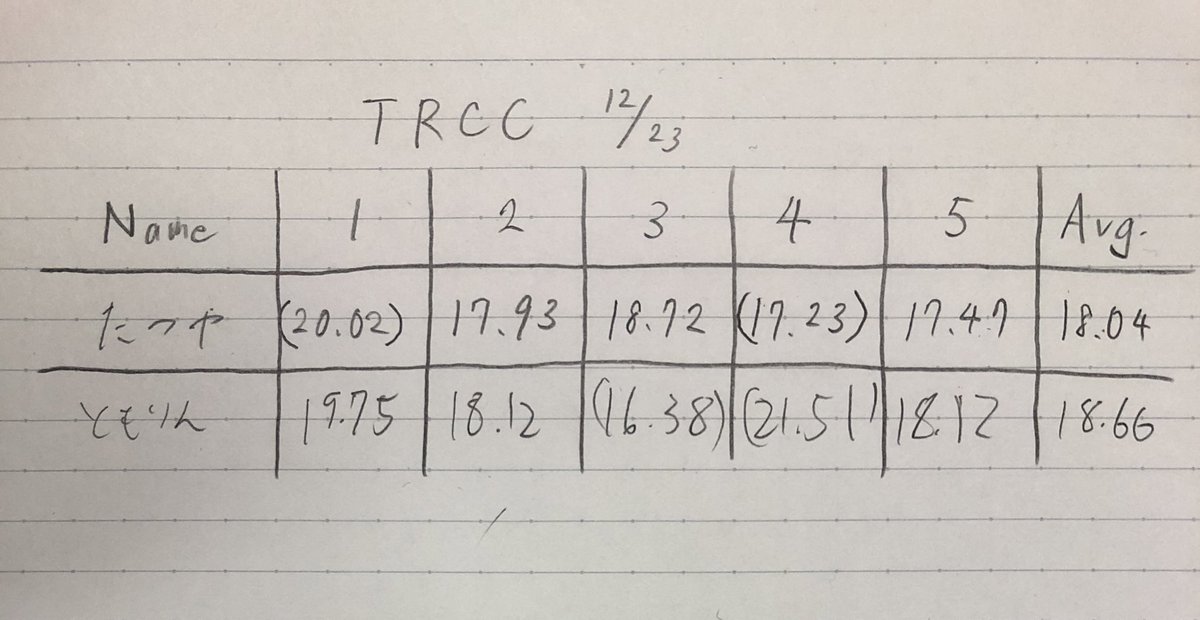 TRCC 12/23
Name 1 2 3 4 5 Avg.
たつや (20.02) 17.93 18.72 (17.23) 17.47 18.04
ともりん 19.75 18.12 (16.38) (21.51) 18.12 18.66